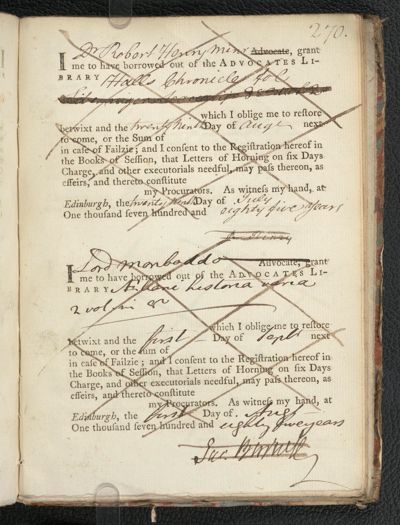 270.
I Dr Robert Henry minr Advocate, grant
me to have borrowed out of the ADVOCATES LI-
BRARY Halls Chronicle fol
which I oblige me to restore
betwixt and the twenty ninth Day of Augt next
to come, or the Sum of
in case of Failzie; and I consent to the Registration hereof in
the Books of Session, that Letters of Horning on six Days
Charge, and other executorials needful, may pass thereon, as
effeirs, and thereto constitute
my Procurators. As witness my hand, at
Edinburgh, the twenty ninth Day of July
One thousand seven hundred and eighty five years
R. Henry
I Lord monboddo Advocate, grant
me to have borrowed out of the ADVOCATES LI-
BRARY Æliani historia varia
2 vol in 8vo
which I oblige me to restore
betwixt and the first Day of Sept next
to come, or the Sum of
in case of Failzie; and I consent to the Registration hereof in
the Books of Session, that Letters of Horning on six Days
Charge, and other executorials needful, may pass thereon, as
effeirs, and thereto constitute
my Procurators. As witness my hand, at
Edinburgh, the first Day of Augt
One thousand seven hundred and eighty five years
Jac. Burnett